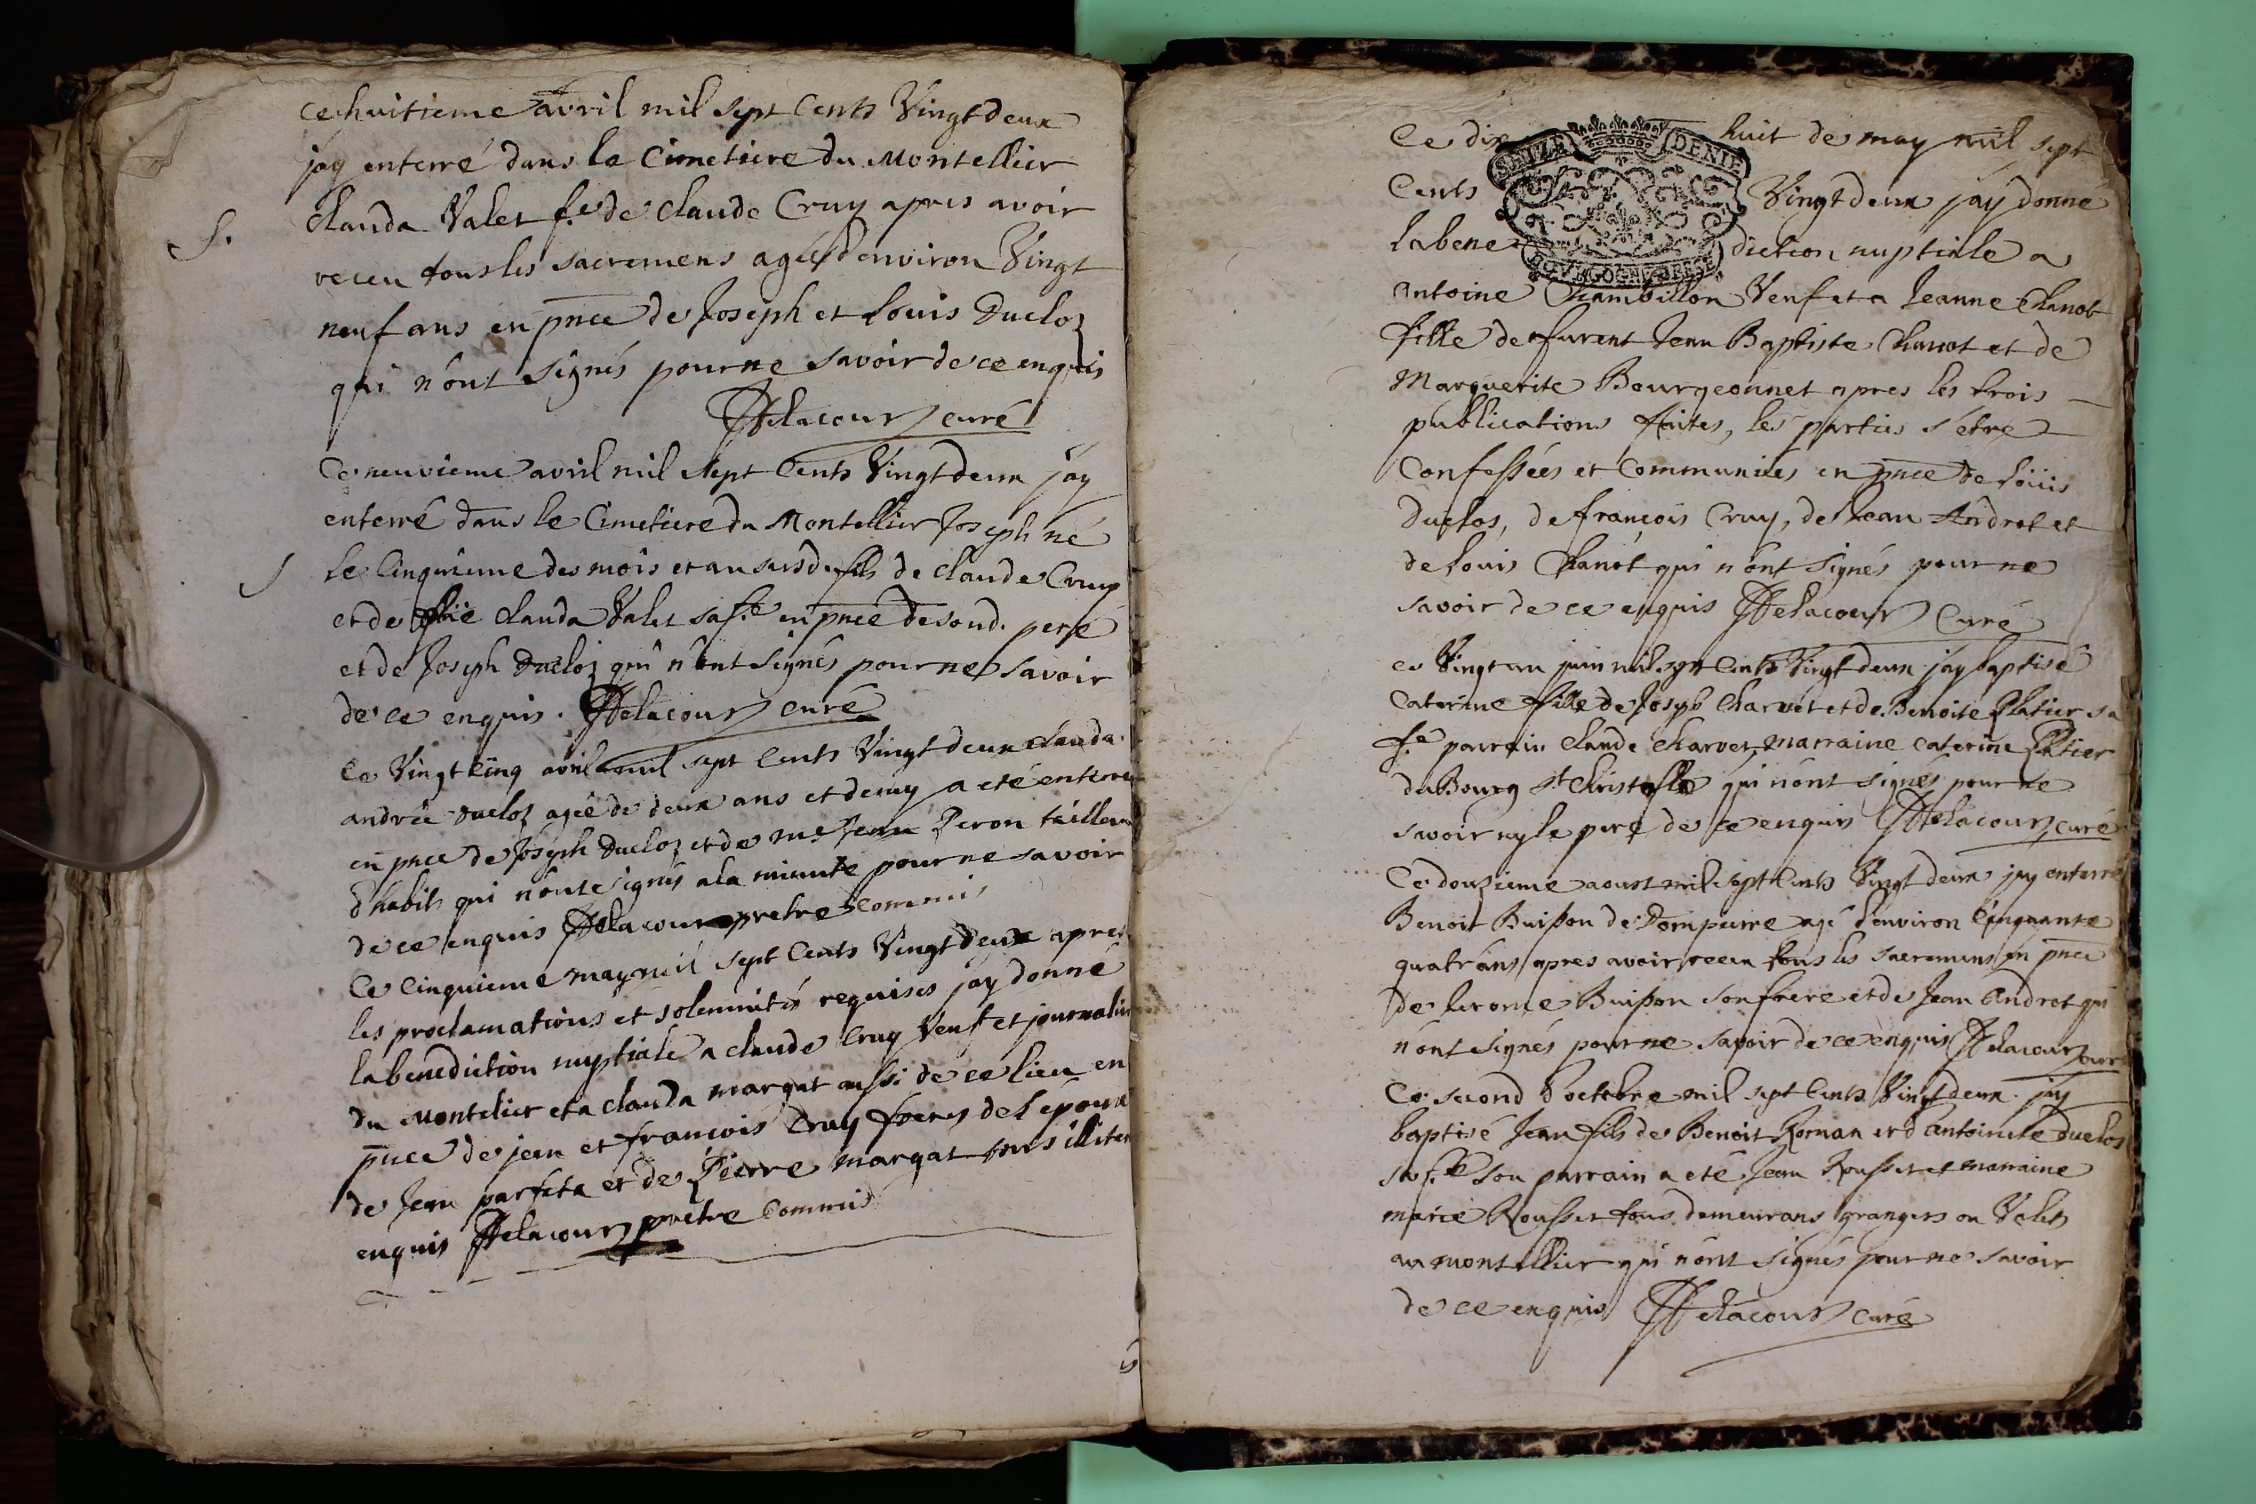 ce huitieme avril mil sept Cents Vingt deux
jay enterré dans le Cimetiere du Montellier
S.
Clauda Valet f.e de Claude Cruy apres avoir
receu tous les sacremens agée d'environ Vingt
neuf ans en pnce de Joseph et Louis Ducloz
qui n'ont signés pour ne savoir de ce enquis
Delacour curé
Ce neuvieme avril mil sept Cents Vingt deux jay
enterré dans le Cimetiere du Montellier Joseph né
S
le Cinquieme des mois et an susd. fils de Claude Cruy
et de Clauda Valet sa f.e en pnce de sond. pere
et de Joseph Ducloz qui n'ont signés pour ne savoir
de ce enquis. Delacour curé
Ce Vingt cinq avril mil sept Cents Vingt deux Clauda
andrée Ducloz agée de deux ans et demy a eté enterrée
en pnce de Joseph Ducloz et de me Jean Peron tailleur
d'habits qui n'ont signés a la minute pour ne savoir
de ce enquis Delacour pretre commis
Ce Cinquieme may mil sept Cents Vingt deux apres
les proclamations et solemnités requises jay donné
la benediction nuptiale a claude Cruy Veuf et journalier
du Montelier et a clauda margat aussi de ce lieu en
pnce de jean et françois Cruy freres de l'epoux
de Jean parfeta et de Pierre margat tous illiterés
enquis Delacour pretre Commis
Ce dix huit de may mil sept
SEIZE DENIE
Cents Vingt deux jay donné
la bene diction nuptiale a
BOVRGOGNE BRESSE
antoine Chambillon Veuf et a Jeanne Chanot
fille de furent Jean Baptiste Chanot et de
Marguerite Bourgeonnet apres les trois
publications faites, les parties s'etre
Confessées et Communiées en pnce de Loüis
Duclos, de françois Cruy, de Jean Androt et
de Louis Chanot qui n'ont signés pour ne
savoir de ce enquis Delacour Curé
ce Vingt un juin mil sept Cents Vingt deux jay baptisé
Caterine fille de Joseph Charvet et de Benoite Platier sa
f.e parrein Claude Charvet, marraine Caterine Platier
du Bourg St Christofle qui n'ont signés pour ne
savoir ny le pere de ce enquis Delacour curé
Ce douzieme aoust mil sept Cents Vingt deux jay enterré
Benoit Buisson de Dompierre agé d'environ Cinquante
quatr'ans apres avoir receu tous les sacremens en pnce
de Jerome Buisson son frere et de Jean Androt qui
n'ont signés pour ne savoir de ce enquis Delacour curé
Ce second d'octobre mil sept Cents Vingt deux jay
baptisé Jean fils de Benoit Roman et d'antoinete Duclos
sa f.e son parrain a eté Jean Rousset et marraine
marie Rousset tous demeurans grangers ou Valets
au montellier qui n'ont signés pour ne savoir
de ce enquis Delacour curé